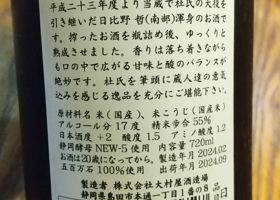 平成二十三年度より当蔵で氏の大役を
引き継いだ日比野 哲(南部)渾身のお酒で
す。搾ったお酒を瓶詰め後、ゆっくりと
熟成させました。香りは落ち着きながら
も口の中で広がる甘味と酸のバランスが
絶妙です。杜氏を筆頭に蔵人達の意気
込みを感じる逸品を充分にご堪能下さい。
原材料名 米(国産)、米こうじ(国産米)
アルコール分 17度 精米歩合 55%
日本酒度 +2 酸度 1.5 アミノ酸度 1.2
静岡酵母 NEW-5 使用 内容量 720ml
お酒は20歳になってから。 製造年月 2024.02
五百万石 100%使用 出荷年月 2024.09
製造者 株式会社大村屋酒造場
静岡県島田市本通一丁目1番の8